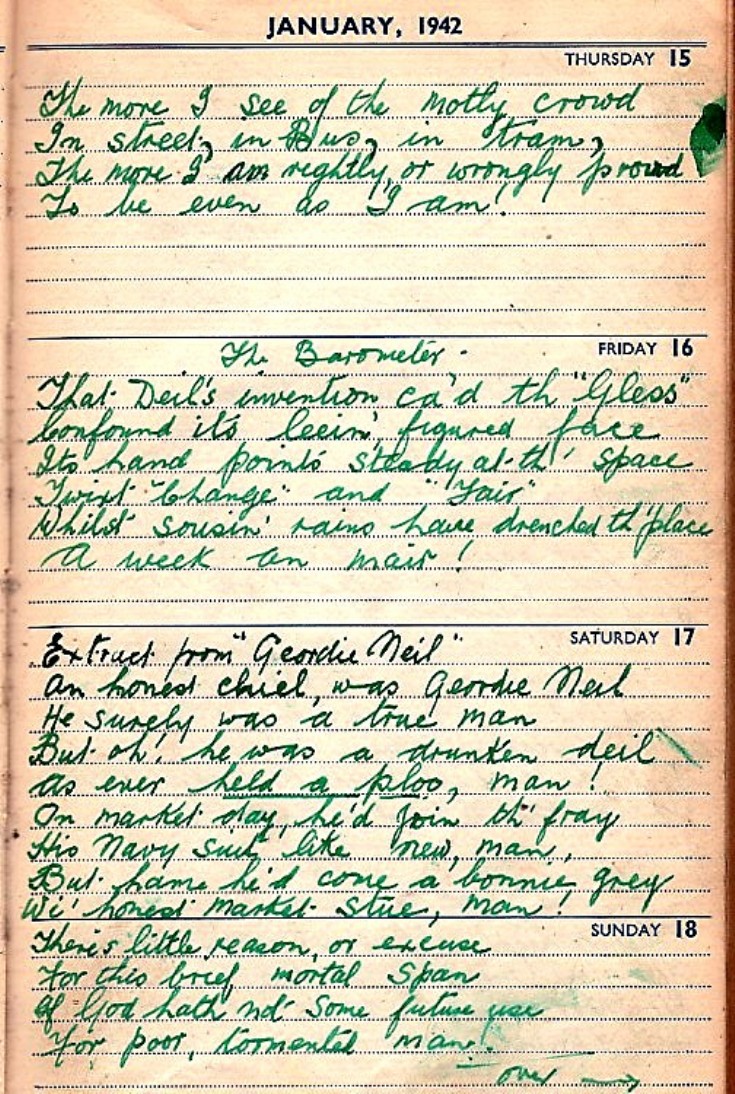 JANUARY, 1942
THURSDAY 15
The more I see of the motly crowd
In street, in Bus, in tram,
The more I am rightly, or wrongly proud
To be even as I am!
FRIDAY 16
The Barometer.
That Deil's invention ca'd th' "Gless"
Confound it's leein' figured face
Its hand points steady at th' space
Twixt "Change" and "Fair"
Whilst sousin' rains have drenched th' place
A week an mair!
SATURDAY 17
Extract from "Geordie Neil"
An honest chiel, was Geordie Neil
He surely was a true man
But oh! he was a drunken deil
As ever held a ploo, man!
On market day, he'd join th' fray
His Navy suit like new, man,
But hame he'd come a bonnie grey
Wi' honest market stue, man!
SUNDAY 18
There's little reason, or excuse
For this brief mortal span
If God hath not some future use
For poor, tormented man.
over →